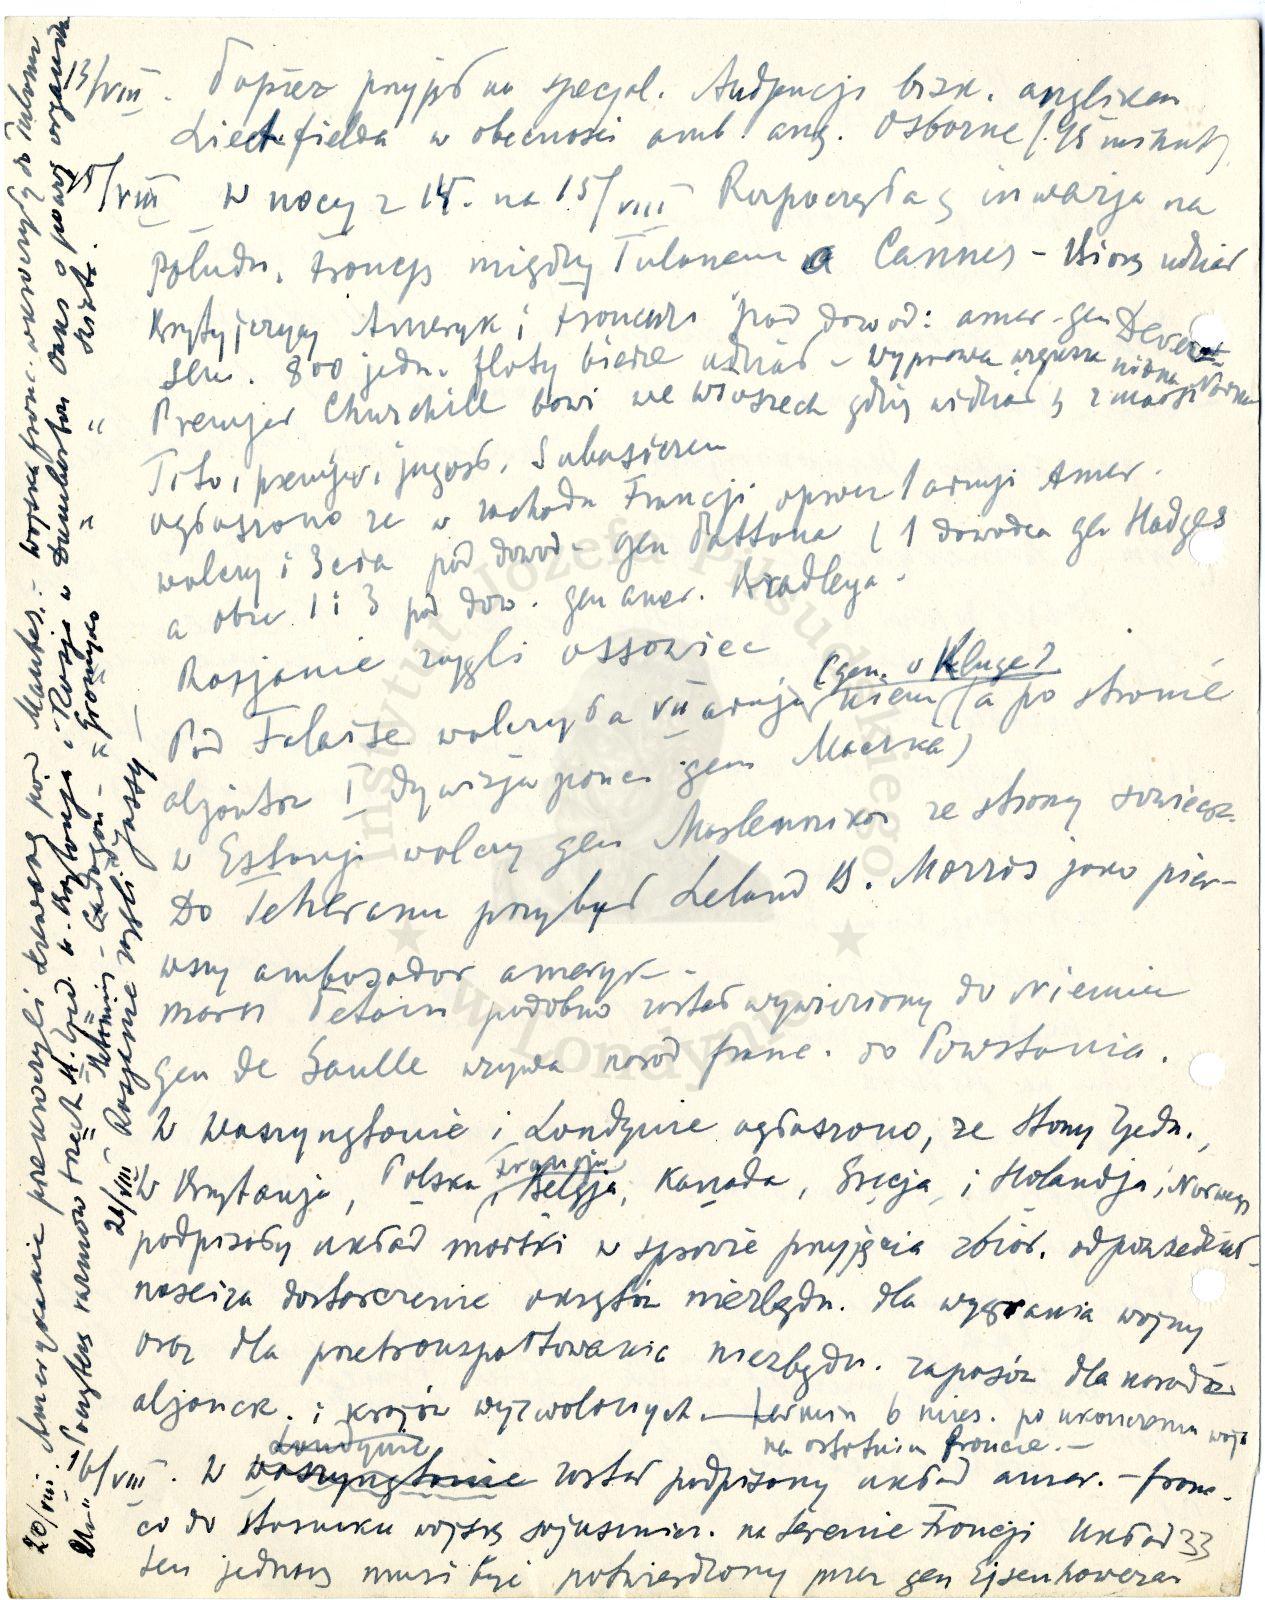 13/VIII. Papież przyjął na specjal. Audjencji bisk. anglikan
Liechfielda w obecności amb. ang. Osborne (45 minut)
15/VIII W nocy z 14. na 15/VIII Rozpoczęła ś inwazja na
połudn. Francję między Tulonem a Cannes - Biorą udział
Brytyjczycy Ameryk i Francuzi pod dowód: amer. gen Devers
800 jedn. floty bierze udział - wyprawa większa niż na Norman
Premjer Churchill bawi we Włoszech gdzie widział ś z marsz
Tito i premjer. jugosł. Subasiczem
ogłoszono że w zachodn Francji oprócz 1 armji Amer.
walczy i 3cia pod dowod - gen Pattona (1 dowódca gen Hodges
a obie 1 i 3 pod dow. gen amer. Bradleya.
Rosjanie zajęli Ossowiec
(gen. v Kluge)
Pod Falaise walczyła VII armja niem (a po stronie
aljantów I dywizja panc. gen Maczka)
w Estonji walczy gen Maslennikow ze strony sowieck.
Do Teheranu przybył Leland B. Morris jako pier-
wszy ambasador ameryk -
marsz Petain podobno został wywieziony do Niemiec
gen de Gaulle wzywa naród franc. do Powstania.
W Waszyngtonie i Londynie ogłoszono, że Stany Zjedn.,
Francja
W Brytanja, Polska, Belgja, Kanada, Grecja, i Holandja, i Norwegj
podpisały układ morski w sprawie przyjęcia zbior. odpowiedzial-
ności za dostarczenie okrętów niezbędn. dla wygrania wojny
oraz dla przetransportowania niezbędn. zapasów dla narodów
aljanck. i krajów wyzwolonych. - termin 6 mies. po ukończeniu wojn
na ostatnim froncie. -
Londynie
16/VIII. W Waszyngtonie został podpisany układ amer. - franc.
co do stosunku wojsk sojusznicz. na terenie Francji Układ
ten jednak musi być potwierdzony przez gen Eisenhowera
33
20/VIII. Amerykanie przekroczyli Sekwanę pod Mantes. - wojska franc. wkroczyły do Tulonu
Początek rozmów trzech St. Zjed. W. Brytanja i Rosja w Dumbarton Oaks o powoj organiz
Stetinius - Cadogan - Gromyko
21/VIII Rosjanie zajęli Jassy -